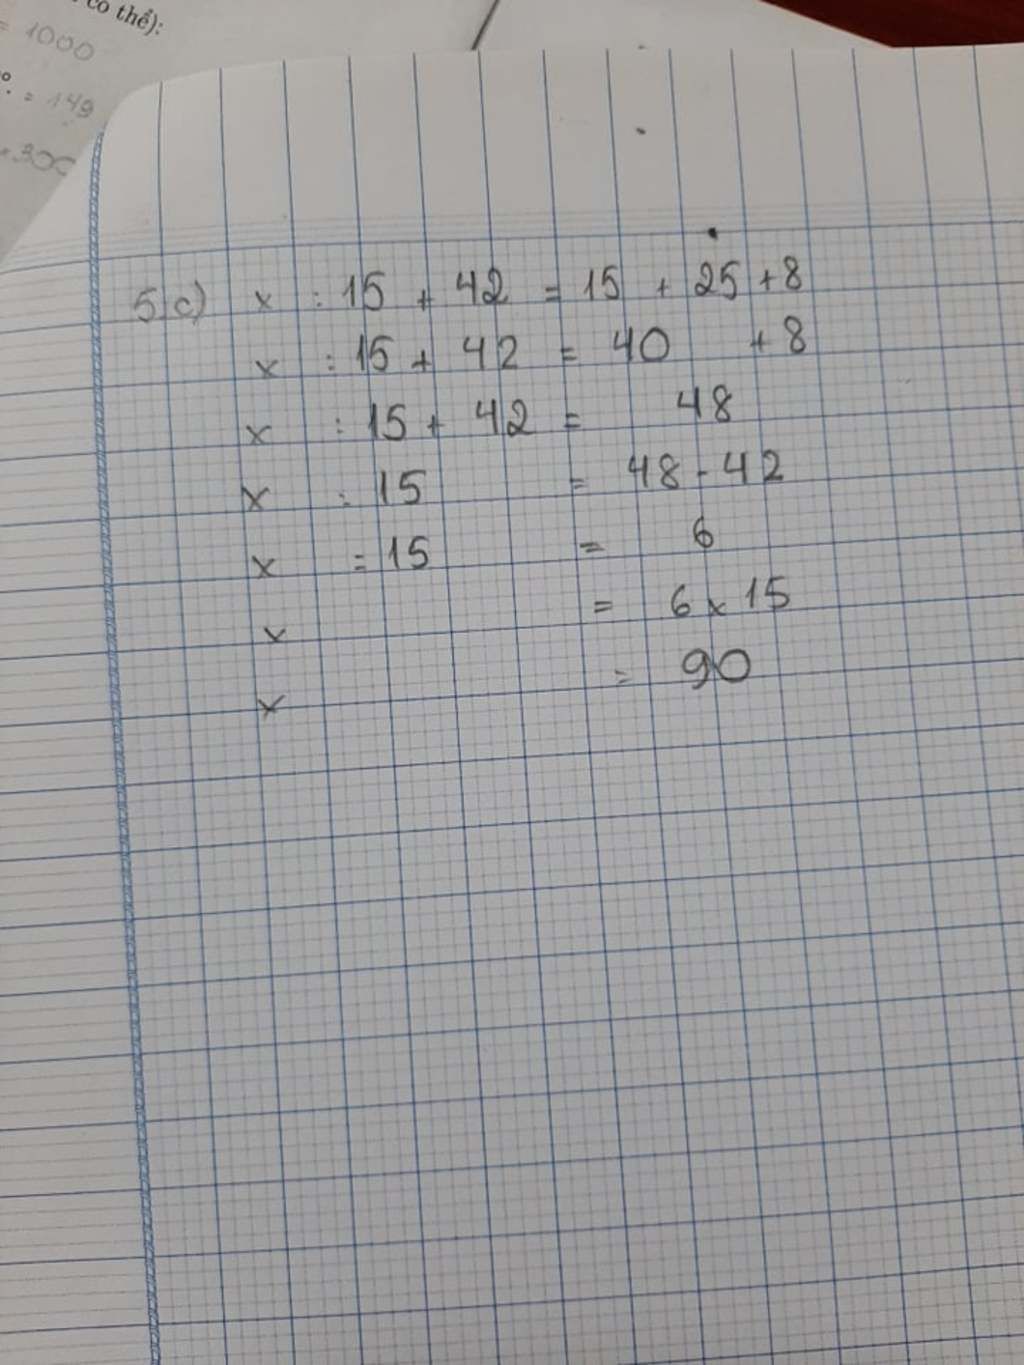 có thể):
= 1000
= 149
300
5 c) x : 15 + 42 = 15 + 25 + 8
x : 15 + 42 = 40 + 8
x : 15 + 42 = 48
x : 15 = 48 - 42
x = 15 = 6
x = 6 x 15
x = 90